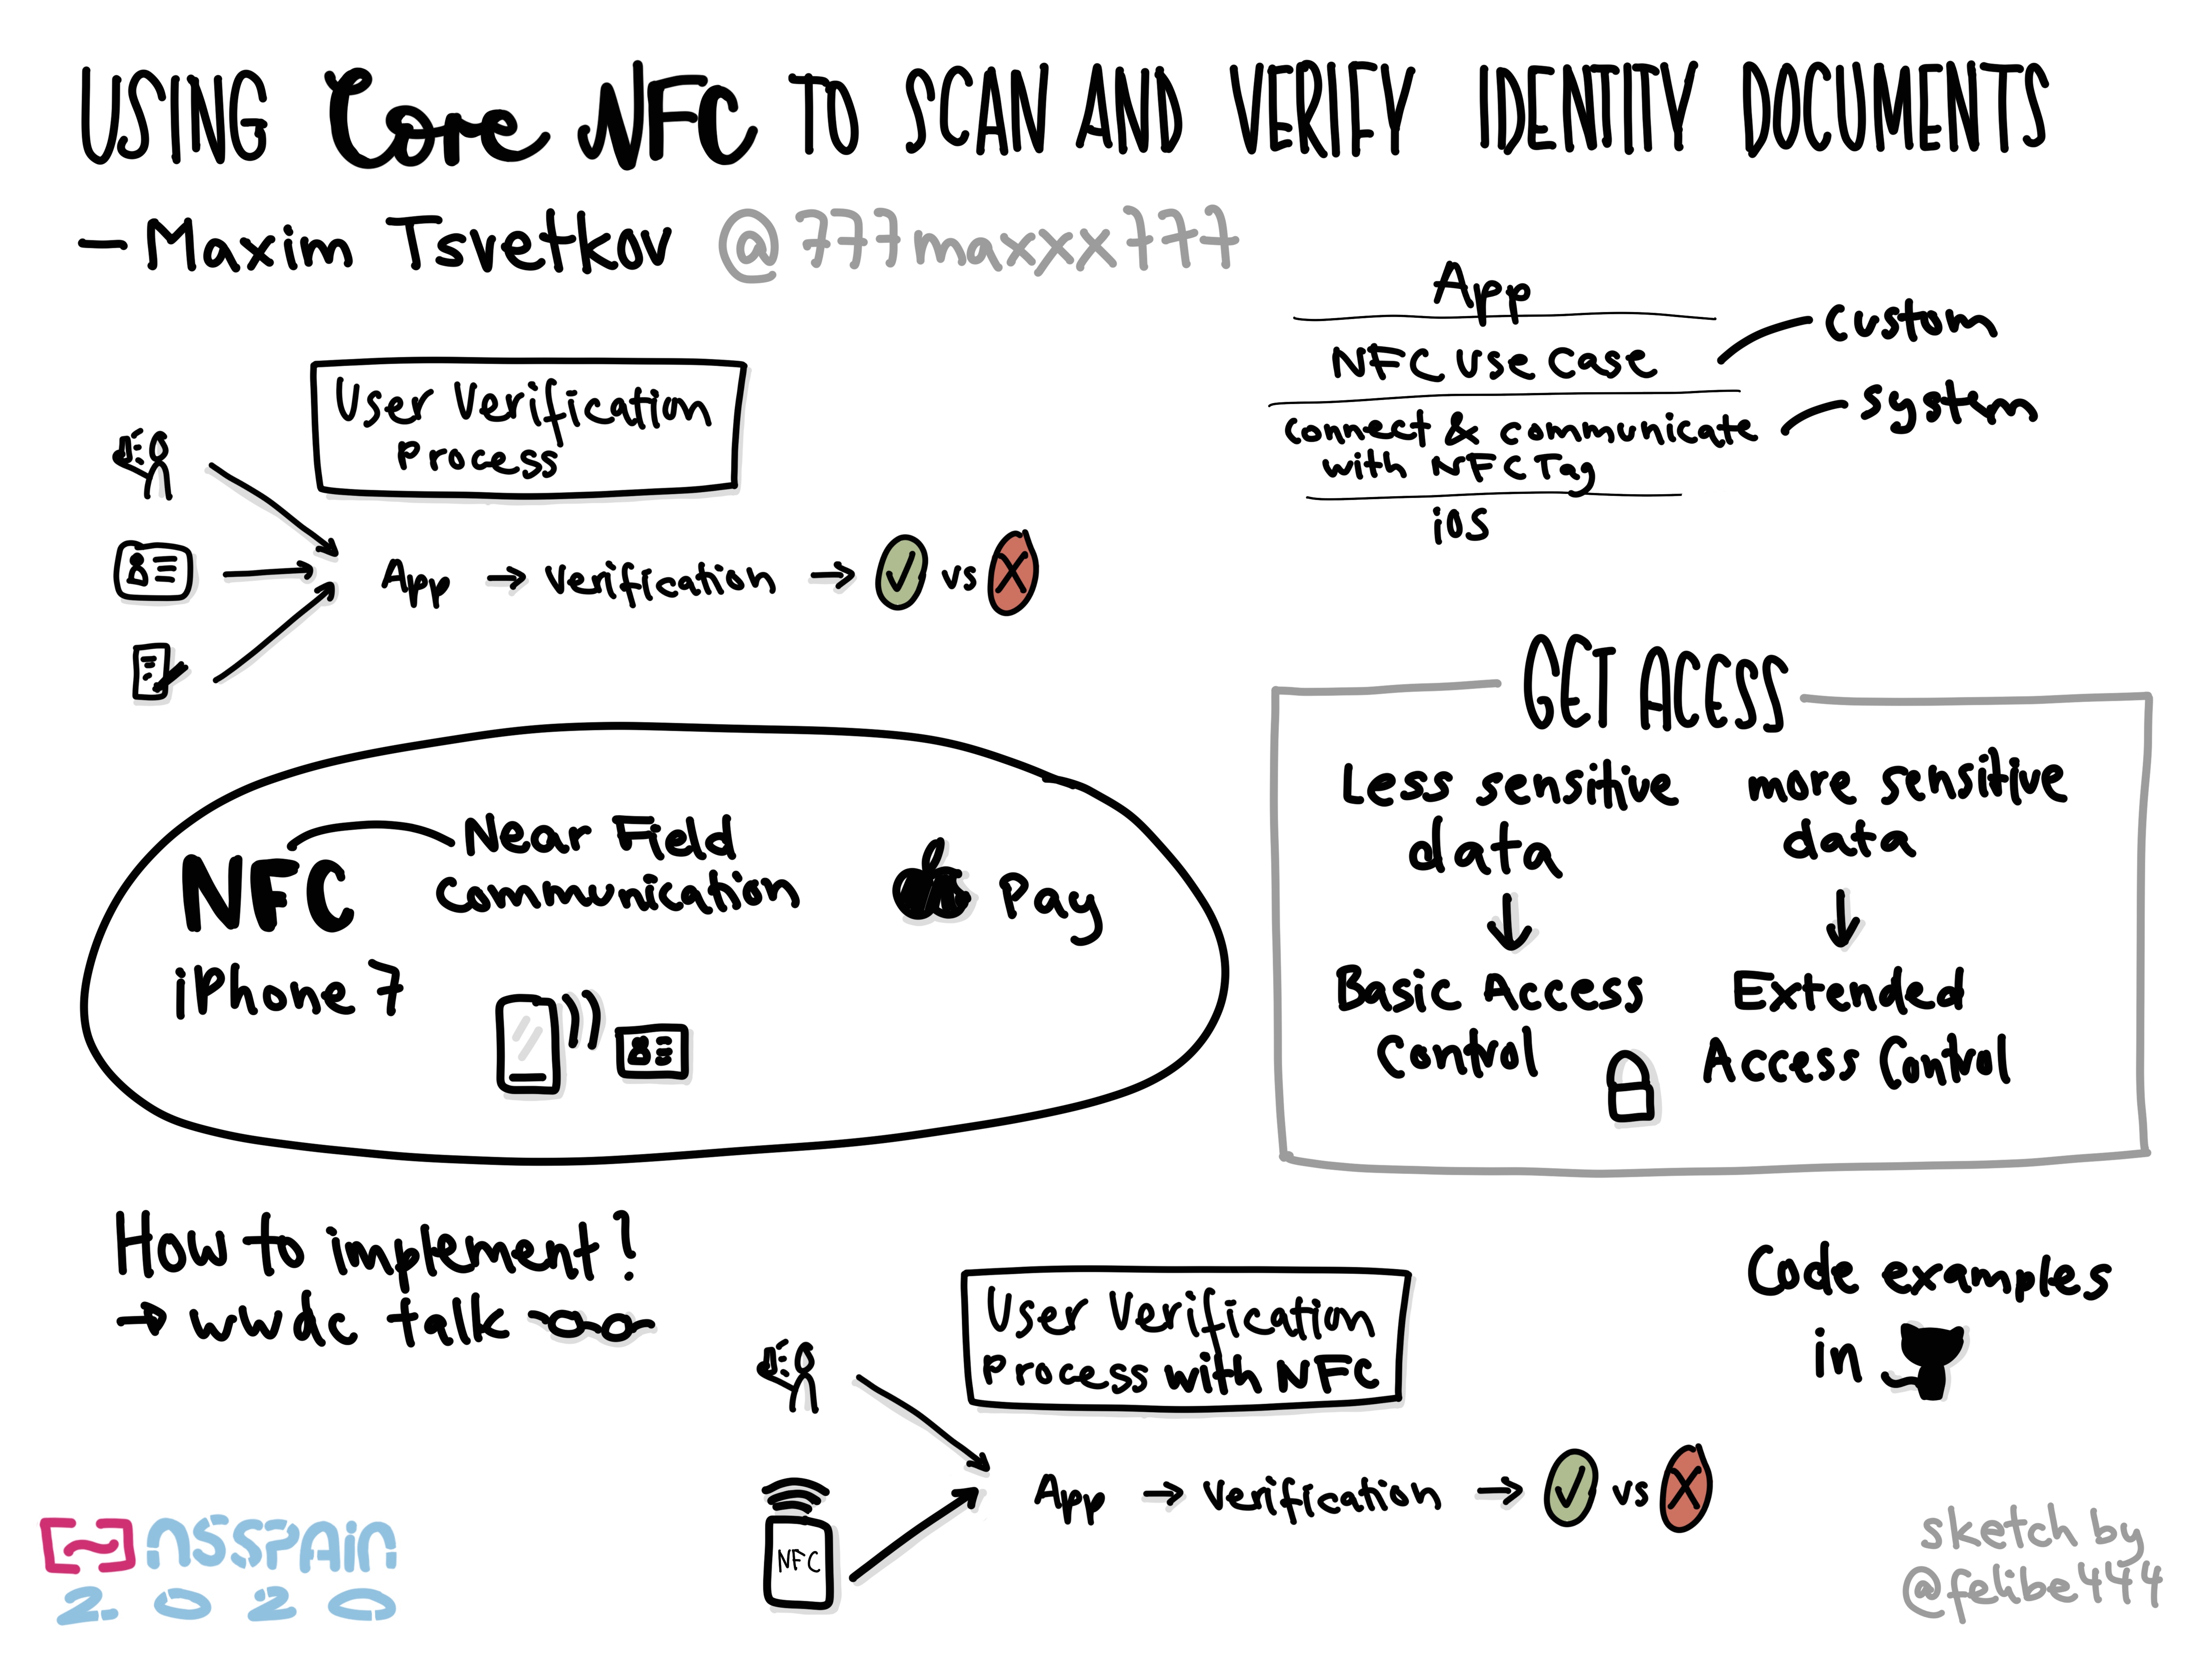 USING Core NFC TO SCAN AND VERIFY IDENTITY DOCUMENTS
— Maxim Tsvetkov @777maxxx777
User Verification
Process
App → Verification → ✓ vs X
App
NFC Use Case
custom
connect & communicate
with NFC Tag
system
iOS
NFC
Near Field
Communication
Pay
iPhone 7
GET ACESS
Less sensitive
data
↓
Basic Access
Control
more sensitive
data
↓
Extended
Access Control
How to implement?
→ wwdc talk
User Verification
Process with NFC
NFC
App → Verification → ✓ vs X
Code examples
in
NSSPAIN
2020
sketch by
@felibe444